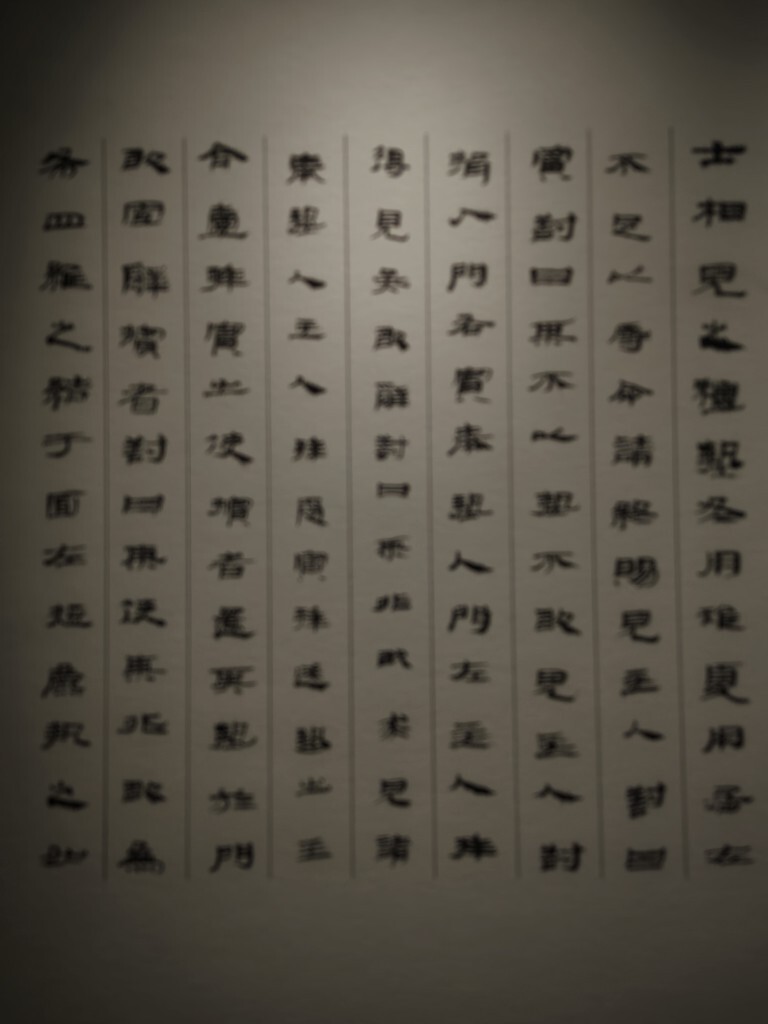 士相見之禮摯冬用雉夏用居左
不足以辱命請終賜見主人對曰
賓對曰某不以摯不敢見主人對
入門右賓奉摯入門左主人拜
得見矣敢辭對曰某非敢求見請
奉摯入主人拜受賓拜送摯出主
合壹拜賓出使擯者還其摯於門
敢固辭擯者對曰某使某非敢為
布四維之結于面左執之如